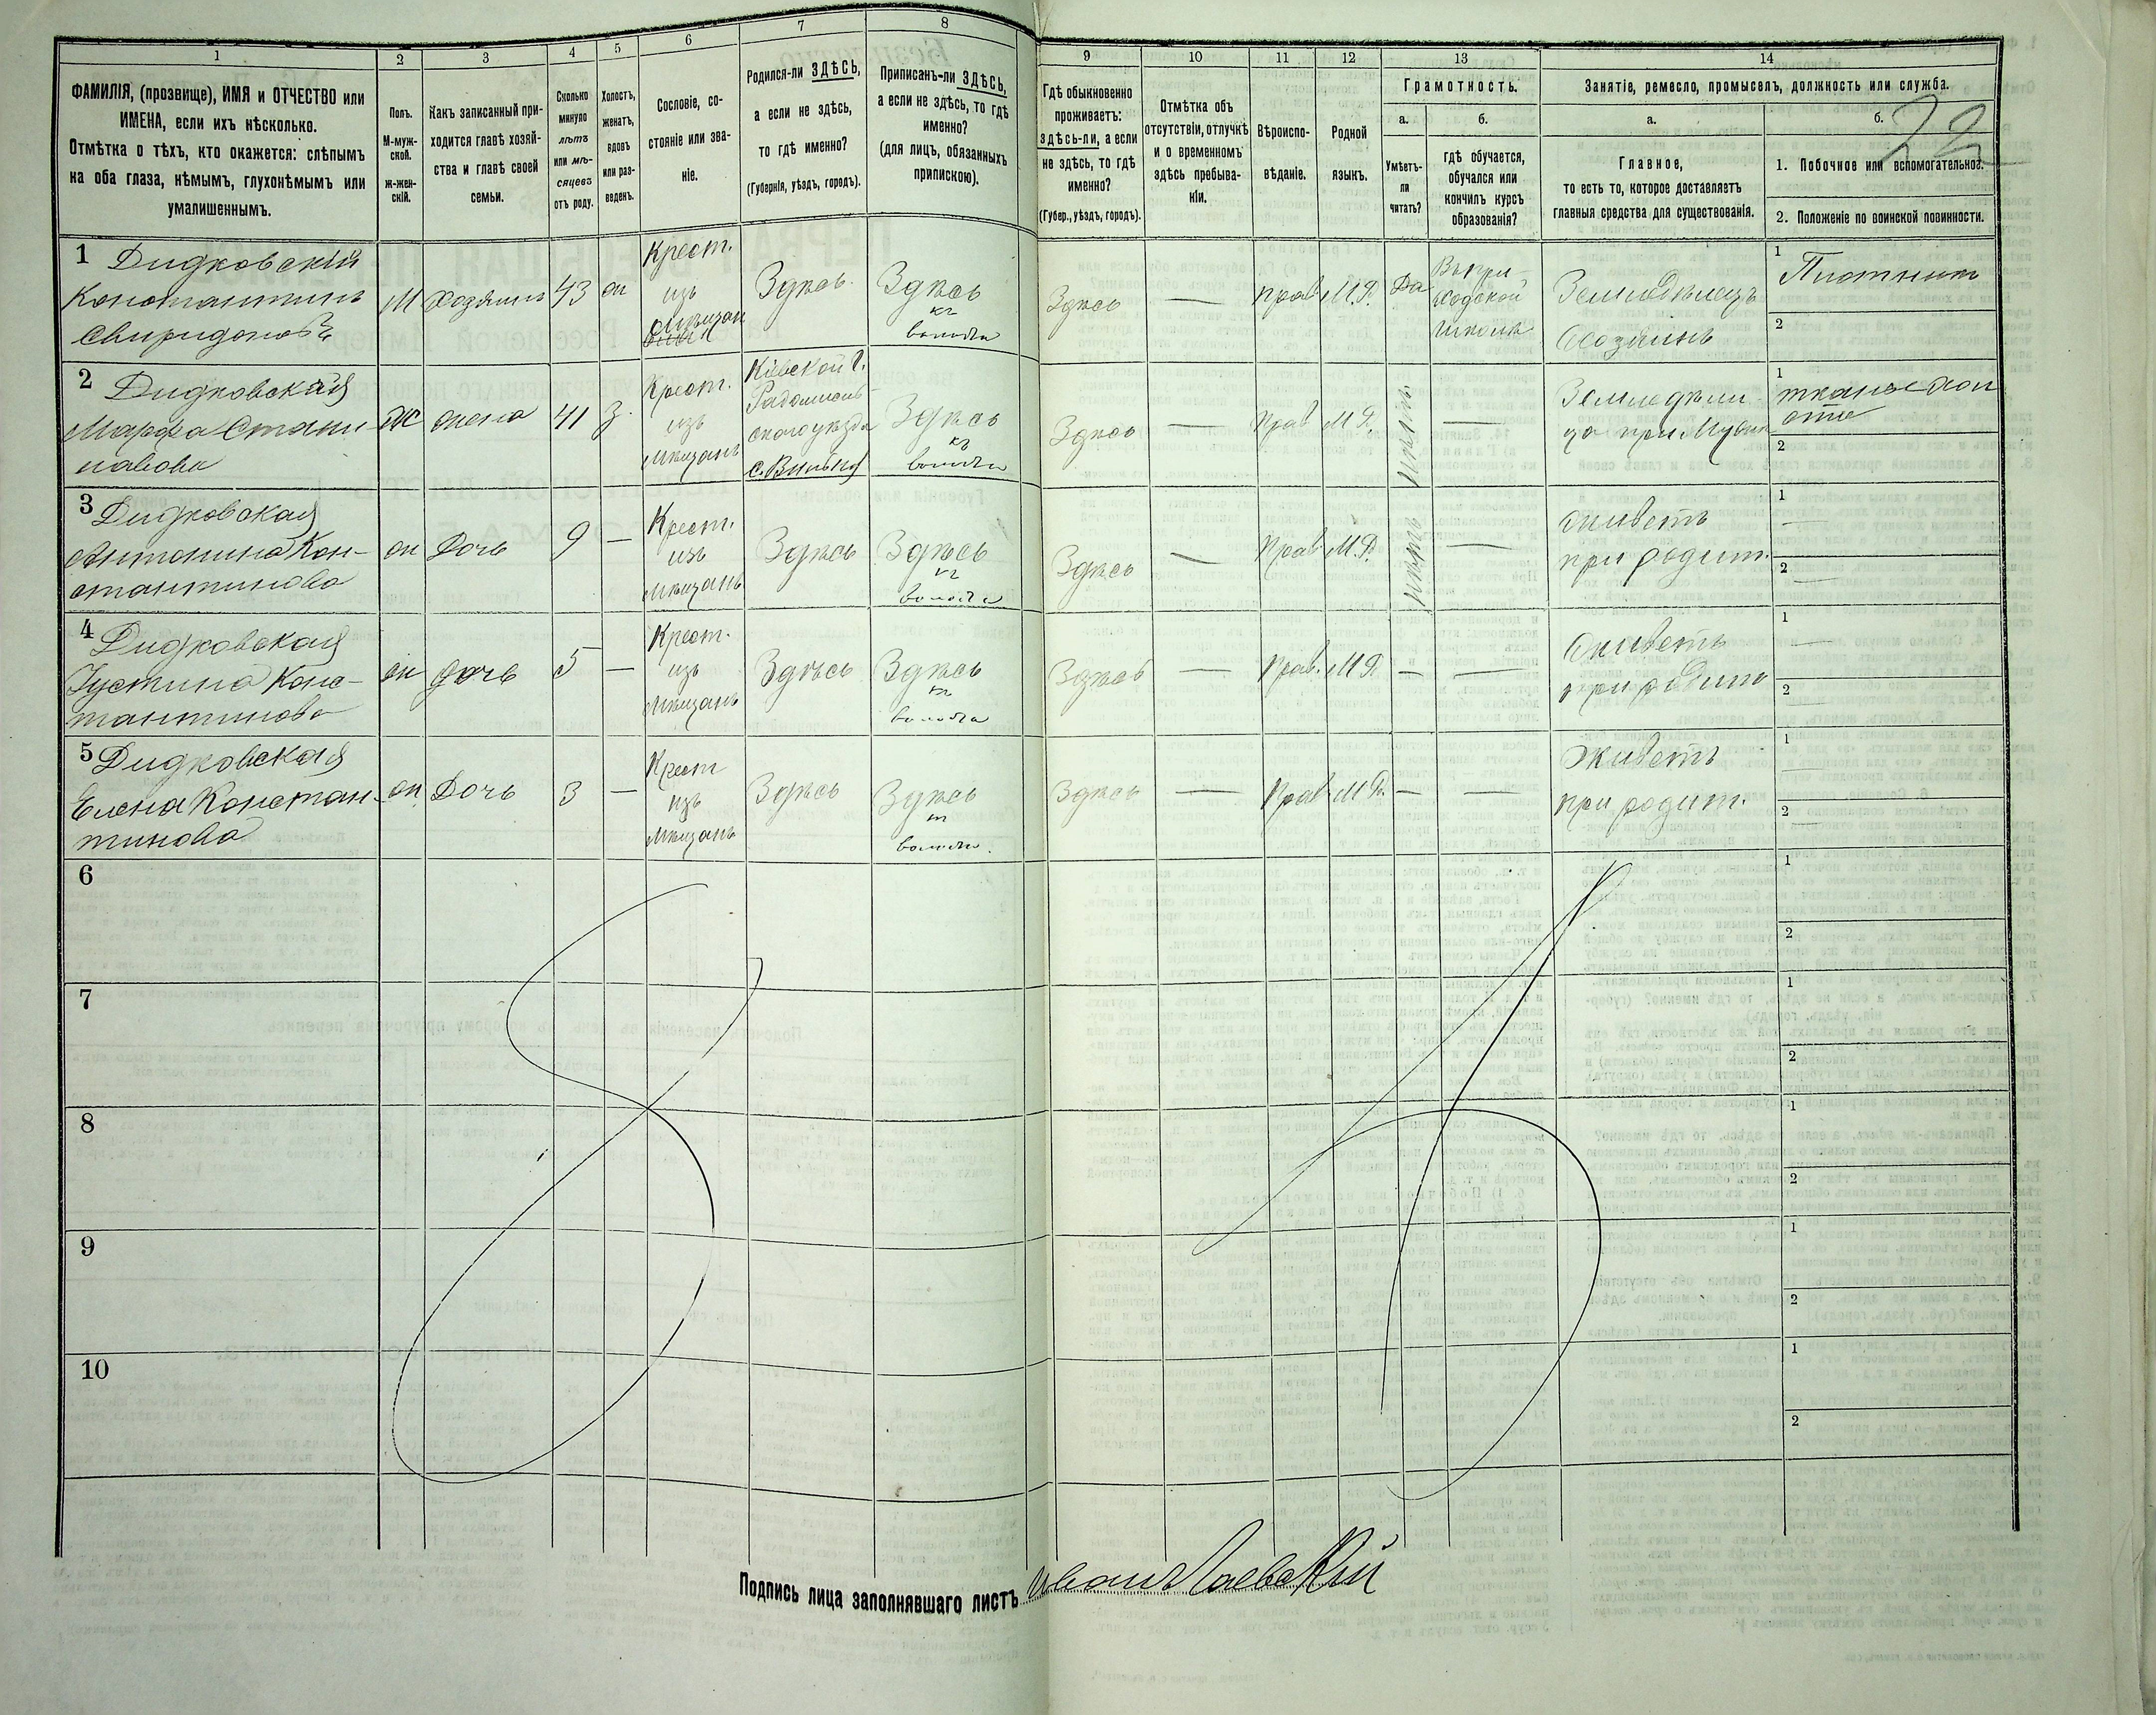 22
1 2 3 4 5 6 7 8 9 10 11 12 13 14
ФАМИЛІЯ, (прозвище), ИМЯ и ОТЧЕСТВО или
ИМЕНА, если ихъ нѣсколько.
Отмѣтка о тѣхъ, кто окажется: слѣпымъ
на оба глаза, нѣмымъ, глухонѣмымъ или
умалишеннымъ.
Полъ.
М-муж-
ской.
ж-жен-
скій.
Какъ записанный при-
ходится главѣ хозяй-
ства и главѣ своей
семьи.
Сколько
минуло
лѣтъ
или мѣ-
сяцевъ
отъ роду.
Холостъ,
женатъ,
вдовъ
или раз-
веденъ.
Сословіе, со-
стояніе или зва-
ніе.
Родился-ли ЗДѢСЬ,
а если не здѣсь,
то гдѣ именно?
(Губернія, уѣздъ, городъ).
Приписанъ-ли ЗДѢСЬ,
а если не здѣсь, то гдѣ
именно?
(для лицъ, обязанныхъ
припискою).
Гдѣ обыкновенно
проживаетъ:
здѣсь-ли, а если
не здѣсь, то гдѣ
именно?
(Губер., уѣздъ, городъ).
Отмѣтка объ
отсутствіи, отлучкѣ
и о временномъ
здѣсь пребыва-
ніи.
Вѣроиспо-
вѣданіе.
Родной
языкъ.
Грамотность.
а.
Умѣетъ-
ли
читать?
б.
гдѣ обучается,
обучался или
кончилъ курсъ
образованія?
Занятіе, ремесло, промыселъ, должность или служба.
а.
Главное,
то есть то, которое доставляетъ
главныя средства для существованія.
б.
1. Побочное или вспомогательное.
2. Положеніе по воинской повинности.
1 Дидковскій
Константинъ
Свиридоновъ
М
хозяинъ
43
ж
Крест.
изъ
мѣщан
Здѣсь
Здѣсь
Здѣсь
—
прав
М.Р.
Да
Въ при-
ходской
школѣ
Земледѣлецъ
хозяинъ
1 Плотникъ
2
2 Дидковская
Марфа Стани
славова
Ж
жена
41
з.
Крест.
изъ
мѣщанъ
Кіевской г.
Радомысль-
скаго уѣзда
с. Вильня
Здѣсь
Здѣсь
—
Прав
М Р.
нѣтъ
—
Земледѣли
ца при мужѣ
1 тканье пол
отна
2
3 Дидковская
Антонина Кон-
стантинова
ж
Дочь
9
—
Крест.
изъ
мѣщанъ
Здѣсь
Здѣсь
Здѣсь
—
Прав.
М.Р.
нѣтъ
—
живетъ
при родит.
1 —
2 —
4 Дидковская
Густина Конс-
тантинова
ж
дочь
5
—
Крест.
изъ
мѣщанъ
Здѣсь
Здѣсь
Здѣсь
—
Прав.
М Р.
—
—
живетъ
при родит
1 —
2 —
5 Дидковская
Елена Констан-
тинова
ж
Дочь
3
—
Крест
изъ
мѣщанъ
Здѣсь
Здѣсь
Здѣсь
—
Прав
М Р.
—
—
Живетъ
при родит.
1 —
2 —
6
1
2
7
1
2
8
1
2
9
1
2
10
1
2
Подпись лица заполнявшаго листъ Иванъ